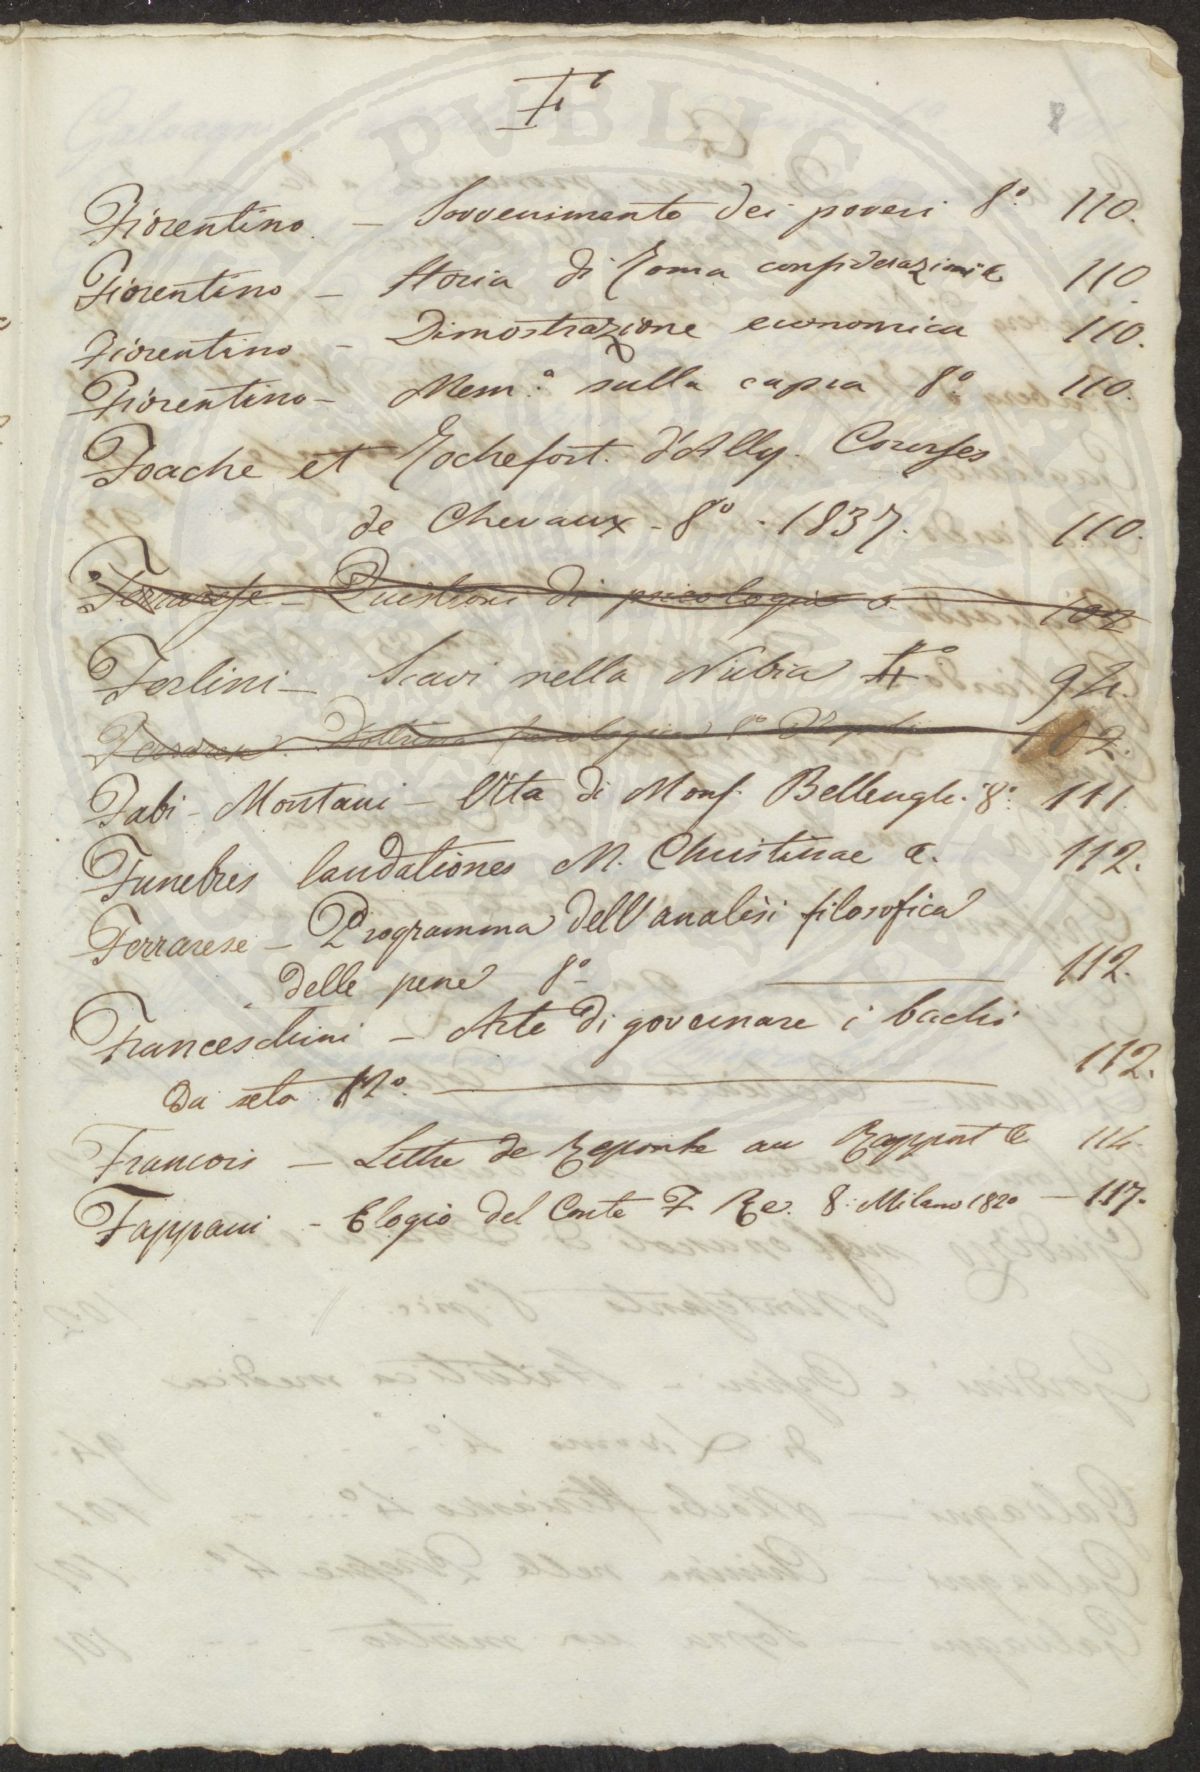 F
8
Fiorentino. — Sovvenimento dei poveri 8º 110.
Fiorentino — Storia di Roma considerazioni & 110.
Fiorentino — Dimostrazione economica 110.
Fiorentino — Mem.ª sulla capra 8º 110.
Foache et Rochefort. d'Ally. Courses
de Chevaux - 8º - 1837. 110.
Ferrarese — Quistioni di psicologia 102
Ferlini — Scavi nella Nubia 94.
8º 102.
Fabi - Montani — Vita di Mons. Bellengh. 8º 111.
Funebres laudationes M. Christinae &. 112.
Ferrarese — Programma dell'analisi filosofica
delle pene 8º 112.
Franceschini — Arte di governare i bachi
da seta 12º. 112.
Francois — Lettre de Reponse au Rapport & 114.
Fappani - Elogio del Conte F. Re. 8. Milano 1820 — 117.